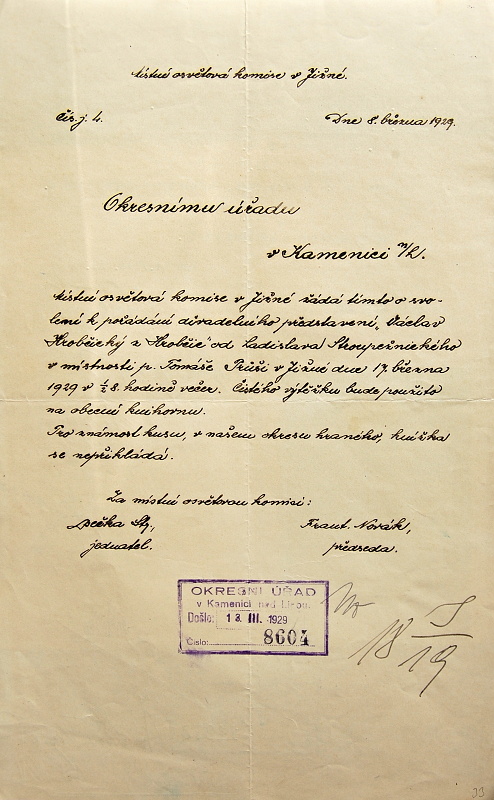 Místní osvětová komise v Jižné.
Čís. j. 4.
Dne 8. března 1929.
Okresnímu úřadu
v Kamenici n/L.
Místní osvětová komise v Jižné žádá tímto o svo-
lení k pořádání divadelního představení, Václav
Hrobčický z Hrobčic" od Ladislava Stroupežnického
v místnosti p. Tomáše Průši v Jižné dne 17. března
1929 v ½ 8. hodině večer. Čistého výtěžku bude použito
na obecní knihovnu.
Pro známost kusu, v našem okresu hraného, knížka
se nepřikládá.
Za místní osvětovou komisi:
Frant. Novák,
jednatel.
předseda.
OKRESNÍ ÚŘAD
v Kamenici nad Lipou.
Došlo: 13. III. 1929
Číslo: 8604
18
19
33